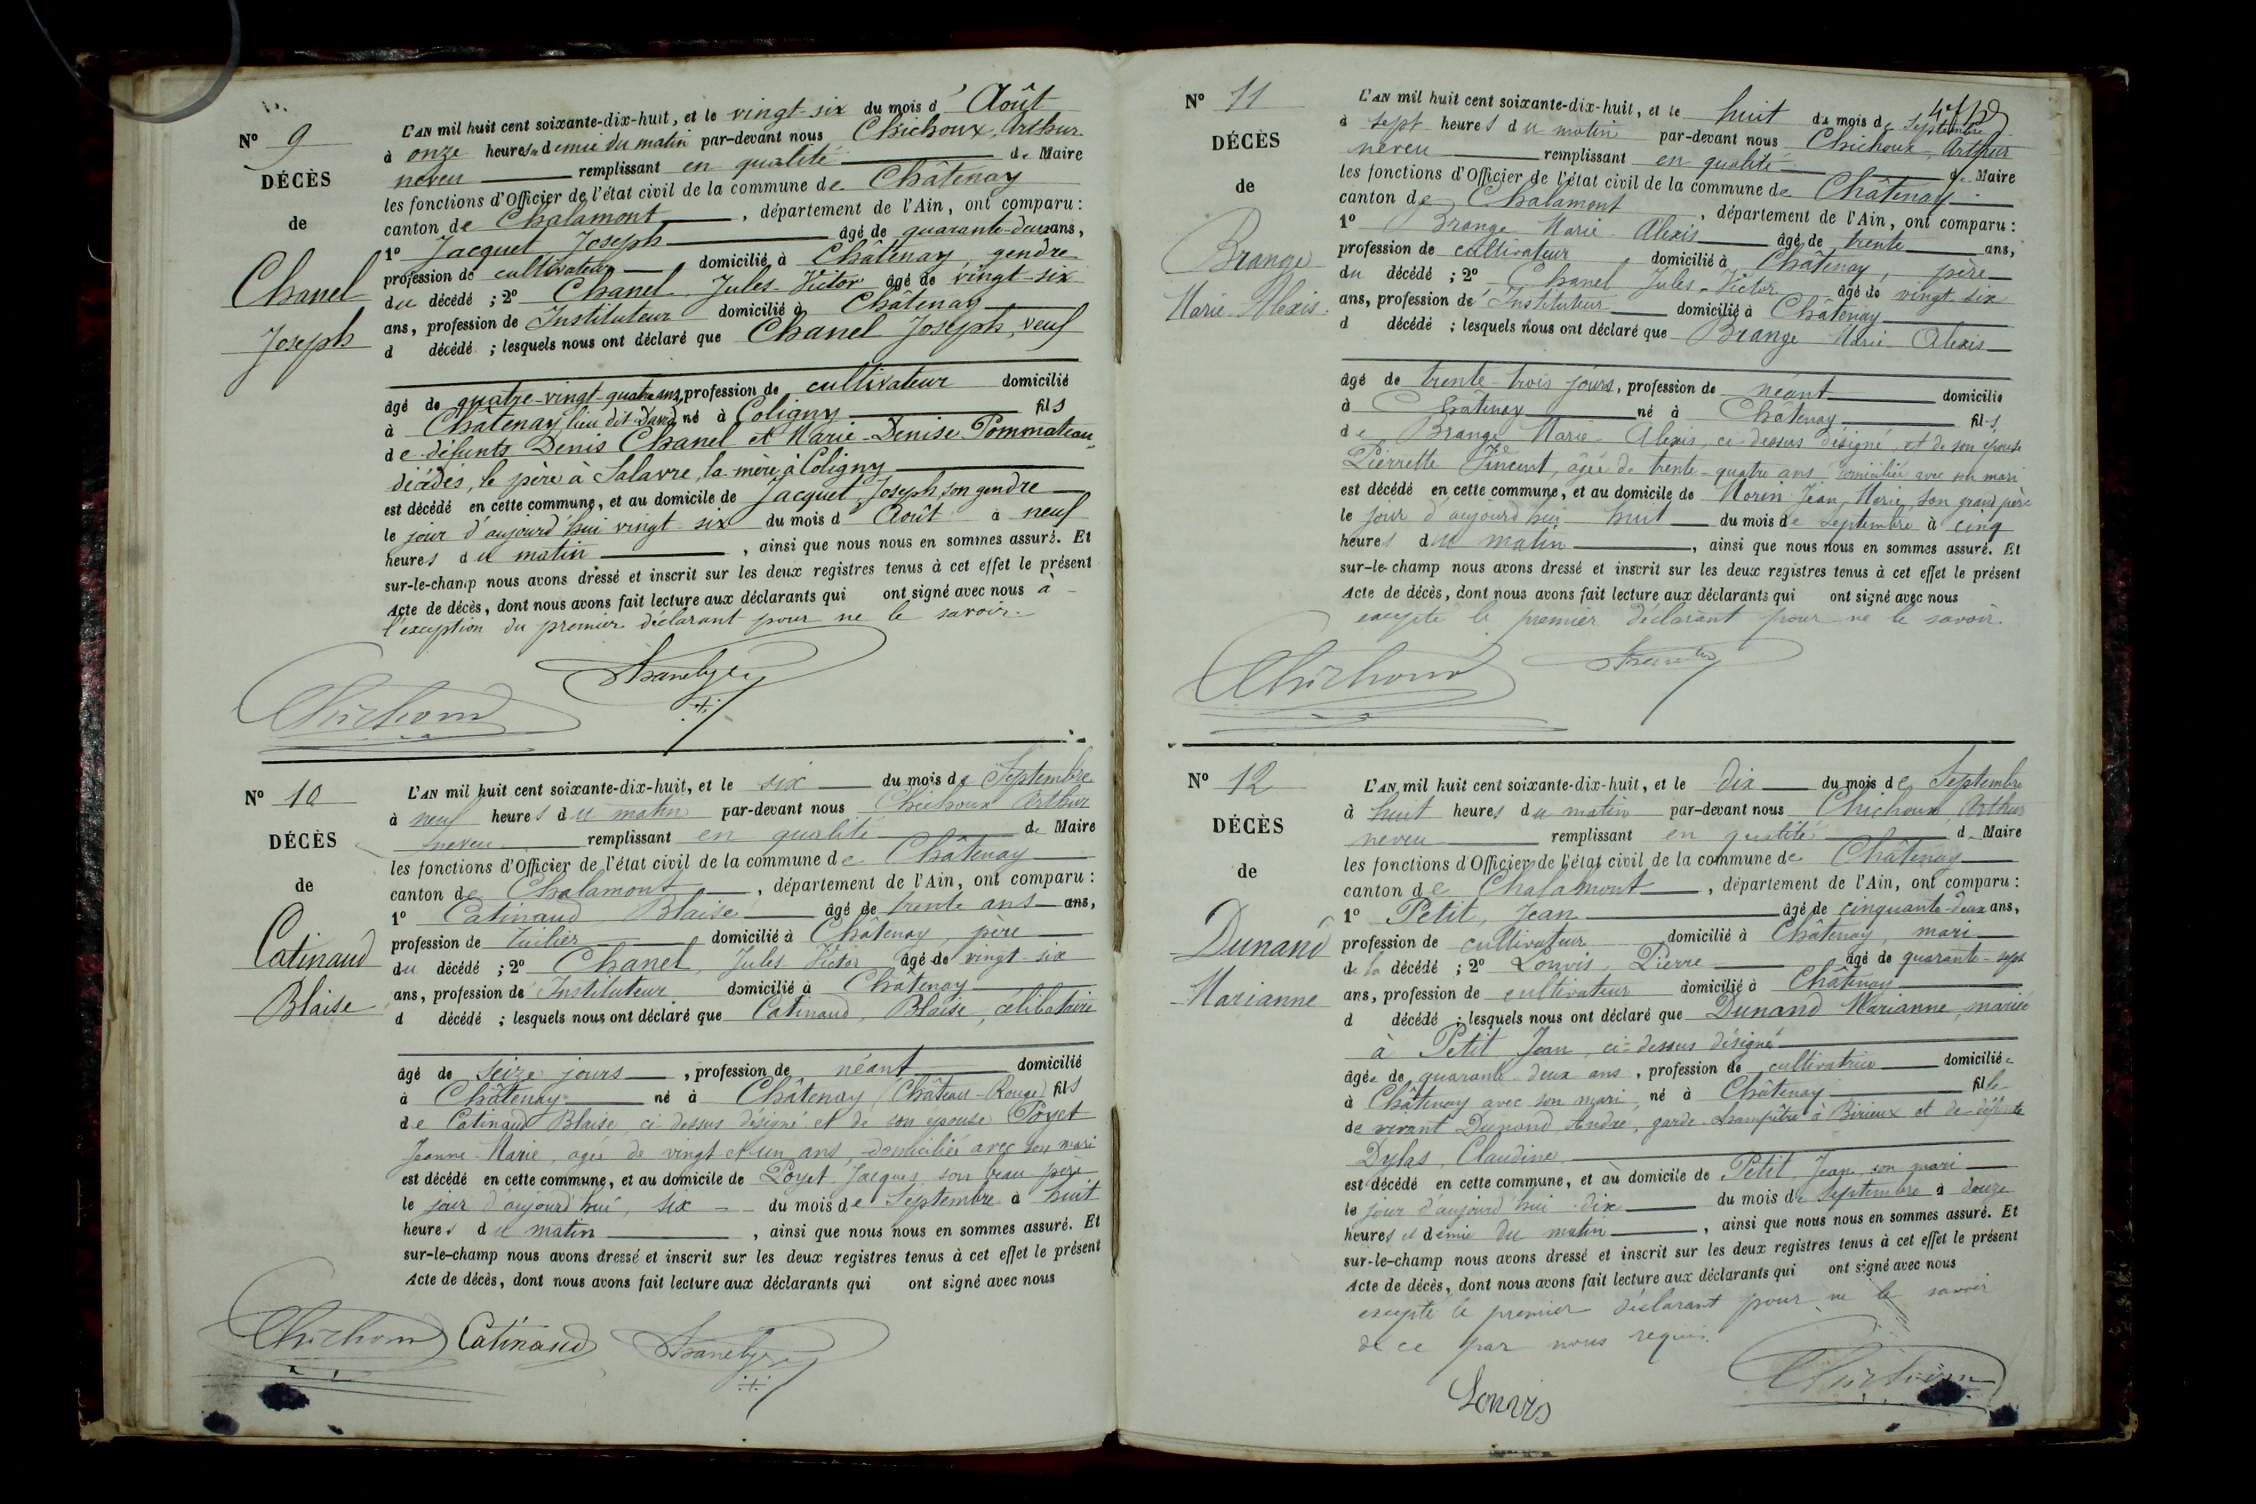 N° 9
DÉCÈS
de
Chanel
Joseph
L'AN mil huit cent soixante-dix-huit, et le vingt-six du mois d'Août
à onze heures & demie du matin par-devant nous Chichoux, Arthur
neveu remplissant en qualité de Maire
les fonctions d'Officier de l'état civil de la commune de Châtenay
canton de Chalamont, département de l'Ain, ont comparu :
1° Jacquet Joseph âgé de quarante-deux ans,
profession de cultivateur domicilié à Châtenay, gendre
du décédé ; 2° Chanel Jules Victor âgé de vingt-six
ans, profession de Instituteur domicilié à Châtenay
d décédé ; lesquels nous ont déclaré que Chanel Joseph, veuf
âgé de quatre-vingt-quatre ans, profession de cultivateur domicilié
à Châtenay, lieu dit né à Coligny fils
de défunts Denis Chanel et Marie-Denise Pommateau
décédés, le père à Salavre, la mère à Coligny
est décédé en cette commune, et au domicile de Jacquet Joseph, son gendre
le jour d'aujourd'hui vingt six du mois d Août à neuf
heures du matin, ainsi que nous nous en sommes assuré. Et
sur-le-champ nous avons dressé et inscrit sur les deux registres tenus à cet effet le présent
Acte de décès, dont nous avons fait lecture aux déclarants qui ont signé avec nous à
l'exception du premier déclarant pour ne le savoir.
Chichoux
N° 10
DÉCÈS
de
Catinaud
Blaise
L'AN mil huit cent soixante-dix-huit, et le six du mois de Septembre
à neuf heures du matin par-devant nous Chichoux Arthur
neveu remplissant en qualité de Maire
les fonctions d'Officier de l'état civil de la commune de Châtenay
canton de Chalamont, département de l'Ain, ont comparu :
1° Catinaud Blaise âgé de trente ans ans,
profession de Tuilier domicilié à Châtenay, père
du décédé ; 2° Chanel, Jules Victor âgé de vingt-six
ans, profession de Instituteur domicilié à Châtenay
d décédé ; lesquels nous ont déclaré que Catinaud, Blaise, célibataire
âgé de seize jours, profession de néant domicilié
à Châtenay né à Châtenay (Château-Rouge) fils
de Catinaud Blaise, ci-dessus désigné et de son épouse Poyet
Jeanne-Marie, agée de vingt et un ans, domiciliée avec son mari
est décédé en cette commune, et au domicile de Poyet Jacques son beau-père
le jour d'aujourd'hui, six du mois de Septembre à huit
heures du matin, ainsi que nous nous en sommes assuré. Et
sur-le-champ nous avons dressé et inscrit sur les deux registres tenus à cet effet le présent
Acte de décès, dont nous avons fait lecture aux déclarants qui ont signé avec nous
Chichoux Catinaud
N° 11
DÉCÈS
de
Brange
Marie-Alexis.
L'AN mil huit cent soixante-dix-huit, et le huit du mois de Septembre
à sept heures du matin par-devant nous Chichoux, Arthur
neveu remplissant en qualité de Maire
les fonctions d'Officier de l'état civil de la commune de Châtenay
canton de Chalamont, département de l'Ain, ont comparu :
1° Brange Marie Alexis âgé de trente ans,
profession de cultivateur domicilié à Châtenay, père
du décédé ; 2° Chanel Jules-Victor âgé de vingt six
ans, profession de Instituteur domicilié à Châtenay
d décédé ; lesquels nous ont déclaré que Brange Marie Alexis
âgé de trente-trois jours, profession de néant domicilié
à Châtenay né à Châtenay fils
de Brange Marie Alexis, ci-dessus désigné, et de son épouse
Pierrette Vincent, âgée de trente-quatre ans domiciliée avec son mari
est décédé en cette commune, et au domicile de Morin Jean Marie, son grand père
le jour d'aujourd'hui huit du mois de Septembre à cinq
heures du matin, ainsi que nous nous en sommes assuré. Et
sur-le-champ nous avons dressé et inscrit sur les deux registres tenus à cet effet le présent
Acte de décès, dont nous avons fait lecture aux déclarants qui ont signé avec nous
excepté le premier déclarant pour ne le savoir.
Chichoux
N° 12
DÉCÈS
de
Dunand
Marianne
L'AN mil huit cent soixante-dix-huit, et le dix du mois de Septembre
à huit heures du matin par-devant nous Chichoux, Arthur
neveu remplissant en qualité d. Maire
les fonctions d'Officier de l'état civil de la commune de Châtenay
canton de Chalamont, département de l'Ain, ont comparu :
1° Petit, Jean âgé de cinquante-deux ans,
profession de cultivateur domicilié à Châtenay, mari
de la décédé ; 2° Louvis, Pierre âgé de quarante-sept
ans, profession de cultivateur domicilié à Châtenay
d décédé ; lesquels nous ont déclaré que Dunand Marianne, mariée
à Petit Jean, ci-dessus désigné
âgée de quarante deux ans, profession de cultivatrice domiciliée
à Châtenay avec son mari né à Châtenay fille
de vivant Dunand, André, garde-champêtre à Birieux et de défunte
Dylas, Claudine
est décédé en cette commune, et au domicile de Petit, Jean, son mari
le jour d'aujourd'hui dix du mois de septembre à douze
heures et demie du matin, ainsi que nous nous en sommes assuré. Et
sur-le-champ nous avons dressé et inscrit sur les deux registres tenus à cet effet le présent
Acte de décès, dont nous avons fait lecture aux déclarants qui ont signé avec nous
excepté le premier déclarant pour ne le savoir
de ce par nous requis.
Louvis Chichoux